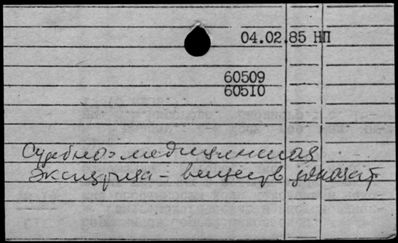 04.02.85 НП
60509
60510
Судебно-медицинская
экспертиза - веществ доказат